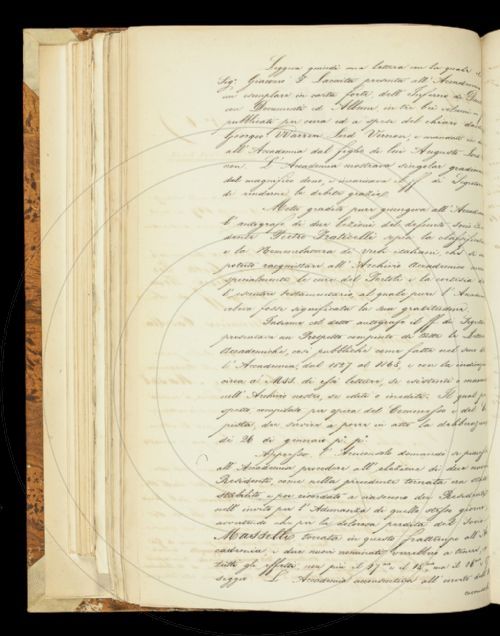 Leggeva quindi una lettera con la quale il
Sig. Giacomo F. Lacaita presenta all'Accademia
un esemplare in carta forte dell'Inferno di Dan
con Documenti ed Album in tre bei volumi
pubblicata per cura ed a spese del chiaro
Giorgio Warren Lord Vernon, e mandato in
all'Accademia dal figlio di lui Augusto Lord
non. L'Accademia mostrava singolar gradim
del magnifico dono, e incaricava il ff. di Segretar
di renderne le debite grazie.
Molto gradito pure giungeva all'Accade
l'autografo di due lezioni del defunto Socio
dente Pietro Fraticelli sopra la classifica
e la Nomenclatura di Verbi italiani, che si
potuto racquistare all'Archivio Accademico
specialmente le cure del e la cortesia d
l'esecutore testamentario, al quale pure l'Accad
voleva fosse significata la sua gratitudine.
Insieme col detto autografo il ff. di Segreta
presentava un Prospetto compiuto di tutte le Lettur
Accademiche, così pubbliche come fatte nel seno
l'Accademia, dal 1827 al 1865, e con la indicaz
circa ai Mss. di esse letture, se esistenti o man
nell'Archivio nostro, se edite o inedite. Il qual
spetto compilato per opera del e del
pista, dee servire a porre in atto la deliberazio
di 26 di gennaio p. p.
Appresso l'Arciconsolo domanda se piaccia
all'Accademia procedere all'elezione di due nuovi
Residenti, come nella precedente tornata era stato
stabilito e poi ricordato a ciascuno dei Residenti
nell'invito per l'Adunanza di questo stesso giorno
avvertendo che per la dolorosa perdita del Socio
Masselli toccata in questo frattempo all'Ac
cademia, i due nuovi nominati verrebbero a
tutti gli effetti, non più il 17mo e il 18mo, ma il 16mo
seggio. L'Accademia acconsentiva all'invito dell'